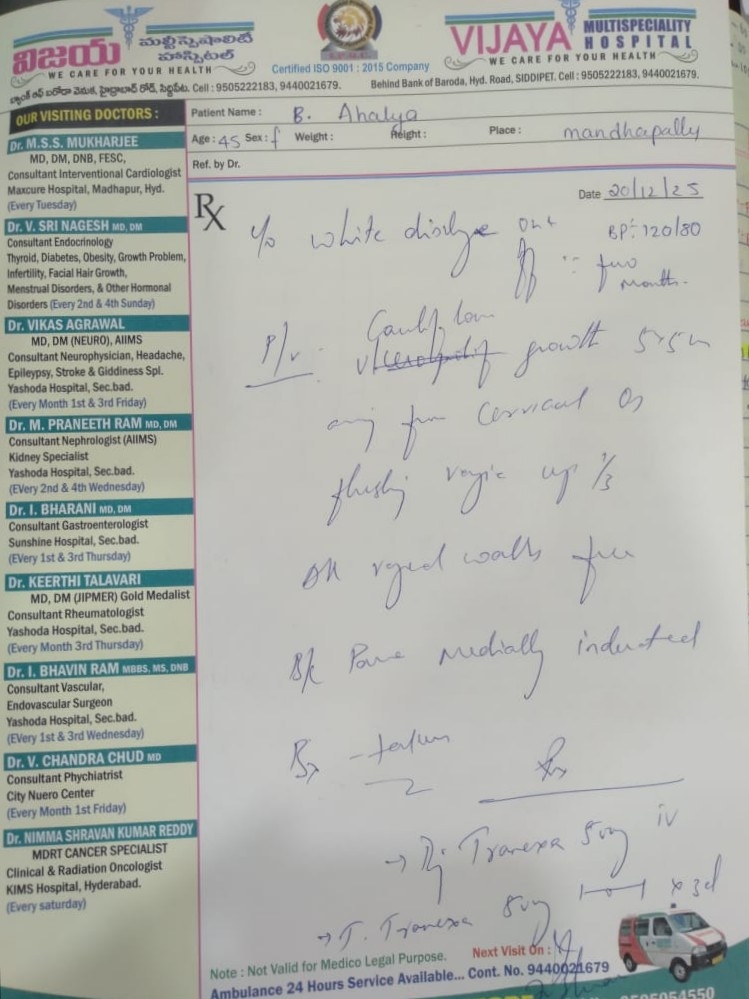 విజయ మల్టీస్పెషాలిటీ హాస్పిటల్
WE CARE FOR YOUR HEALTH
Certified ISO 9001 : 2015 Company
VIJAYA MULTISPECIALITY HOSPITAL
WE CARE FOR YOUR HEALTH
బ్యాంక్ ఆఫ్ బరోడా వెనుక, హైద్రాబాద్ రోడ్, సిద్దిపేట. Cell : 9505222183, 9440021679.
Behind Bank of Baroda, Hyd. Road, SIDDIPET. Cell : 9505222183, 9440021679.
OUR VISITING DOCTORS :
Dr. M.S.S. MUKHARJEE
MD, DM, DNB, FESC,
Consultant Interventional Cardiologist
Maxcure Hospital, Madhapur, Hyd.
(Every Tuesday)
Dr. V. SRI NAGESH MD, DM
Consultant Endocrinology
Thyroid, Diabetes, Obesity, Growth Problem,
Infertility, Facial Hair Growth,
Menstrual Disorders, & Other Hormonal
Disorders (Every 2nd & 4th Sunday)
Dr. VIKAS AGRAWAL
MD, DM (NEURO), AIIMS
Consultant Neurophysician, Headache,
Epileypsy, Stroke & Giddiness Spl.
Yashoda Hospital, Sec.bad.
(Every Month 1st & 3rd Friday)
Dr. M. PRANEETH RAM MD, DM
Consultant Nephrologist (AIIMS)
Kidney Specialist
Yashoda Hospital, Sec.bad.
(EVery 2nd & 4th Wednesday)
Dr. I. BHARANI MD, DM
Consultant Gastroenterologist
Sunshine Hospital, Sec.bad.
(EVery 1st & 3rd Thursday)
Dr. KEERTHI TALAVARI
MD, DM (JIPMER) Gold Medalist
Consultant Rheumatologist
Yashoda Hospital, Sec.bad.
(Every Month 3rd Thursday)
Dr. I. BHAVIN RAM MBBS, MS, DNB
Consultant Vascular,
Endovascular Surgeon
Yashoda Hospital, Sec.bad.
(EVery 1st & 3rd Wednesday)
Dr. V. CHANDRA CHUD MD
Consultant Phychiatrist
City Nuero Center
(Every Month 1st Friday)
Dr. NIMMA SHRAVAN KUMAR REDDY
MDRT CANCER SPECIALIST
Clinical & Radiation Oncologist
KIMS Hospital, Hyderabad.
(Every saturday)
Patient Name : B. Ahalya
Age : 45 Sex : f Weight : Height : Place : mandhapally
Ref. by Dr.
Date 20/12/25
Rx
c/o white discharge
BP:- 120/80
two
months.
P/V
growth 5x5
from cervical os
up 1/3
All walls free
B/L Para medially indurated
Bx - taken
Rx
→ Inj Tranexa iv
→ T. Tranexa x 3d
Note : Not Valid for Medico Legal Purpose.
Next Visit On :
Ambulance 24 Hours Service Available... Cont. No. 9440021679